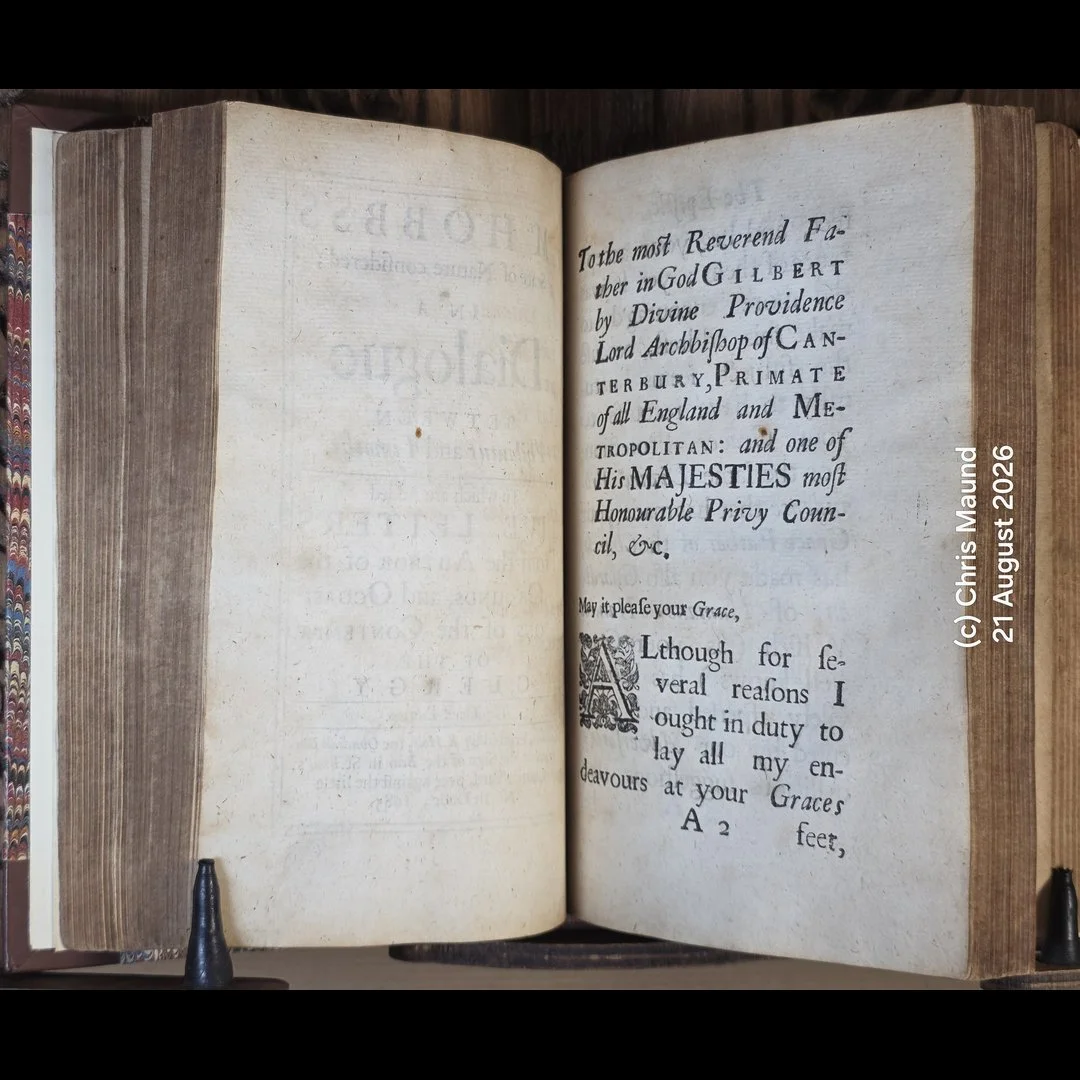 To the moſt Reverend Fa-
ther in God GILBERT
by Divine Providence
Lord Archbiſhop of CAN-
TERBURY, PRIMATE
of all England and ME-
TROPOLITAN: and one of
His MAJESTIES moſt
Honourable Privy Coun-
cil, &c.
May it pleaſe your Grace,
ALthough for ſe-
veral reaſons I
ought in duty to
lay all my en-
deavours at your Graces
A 2 feet,
(c) Chris Maund
21 August 2026